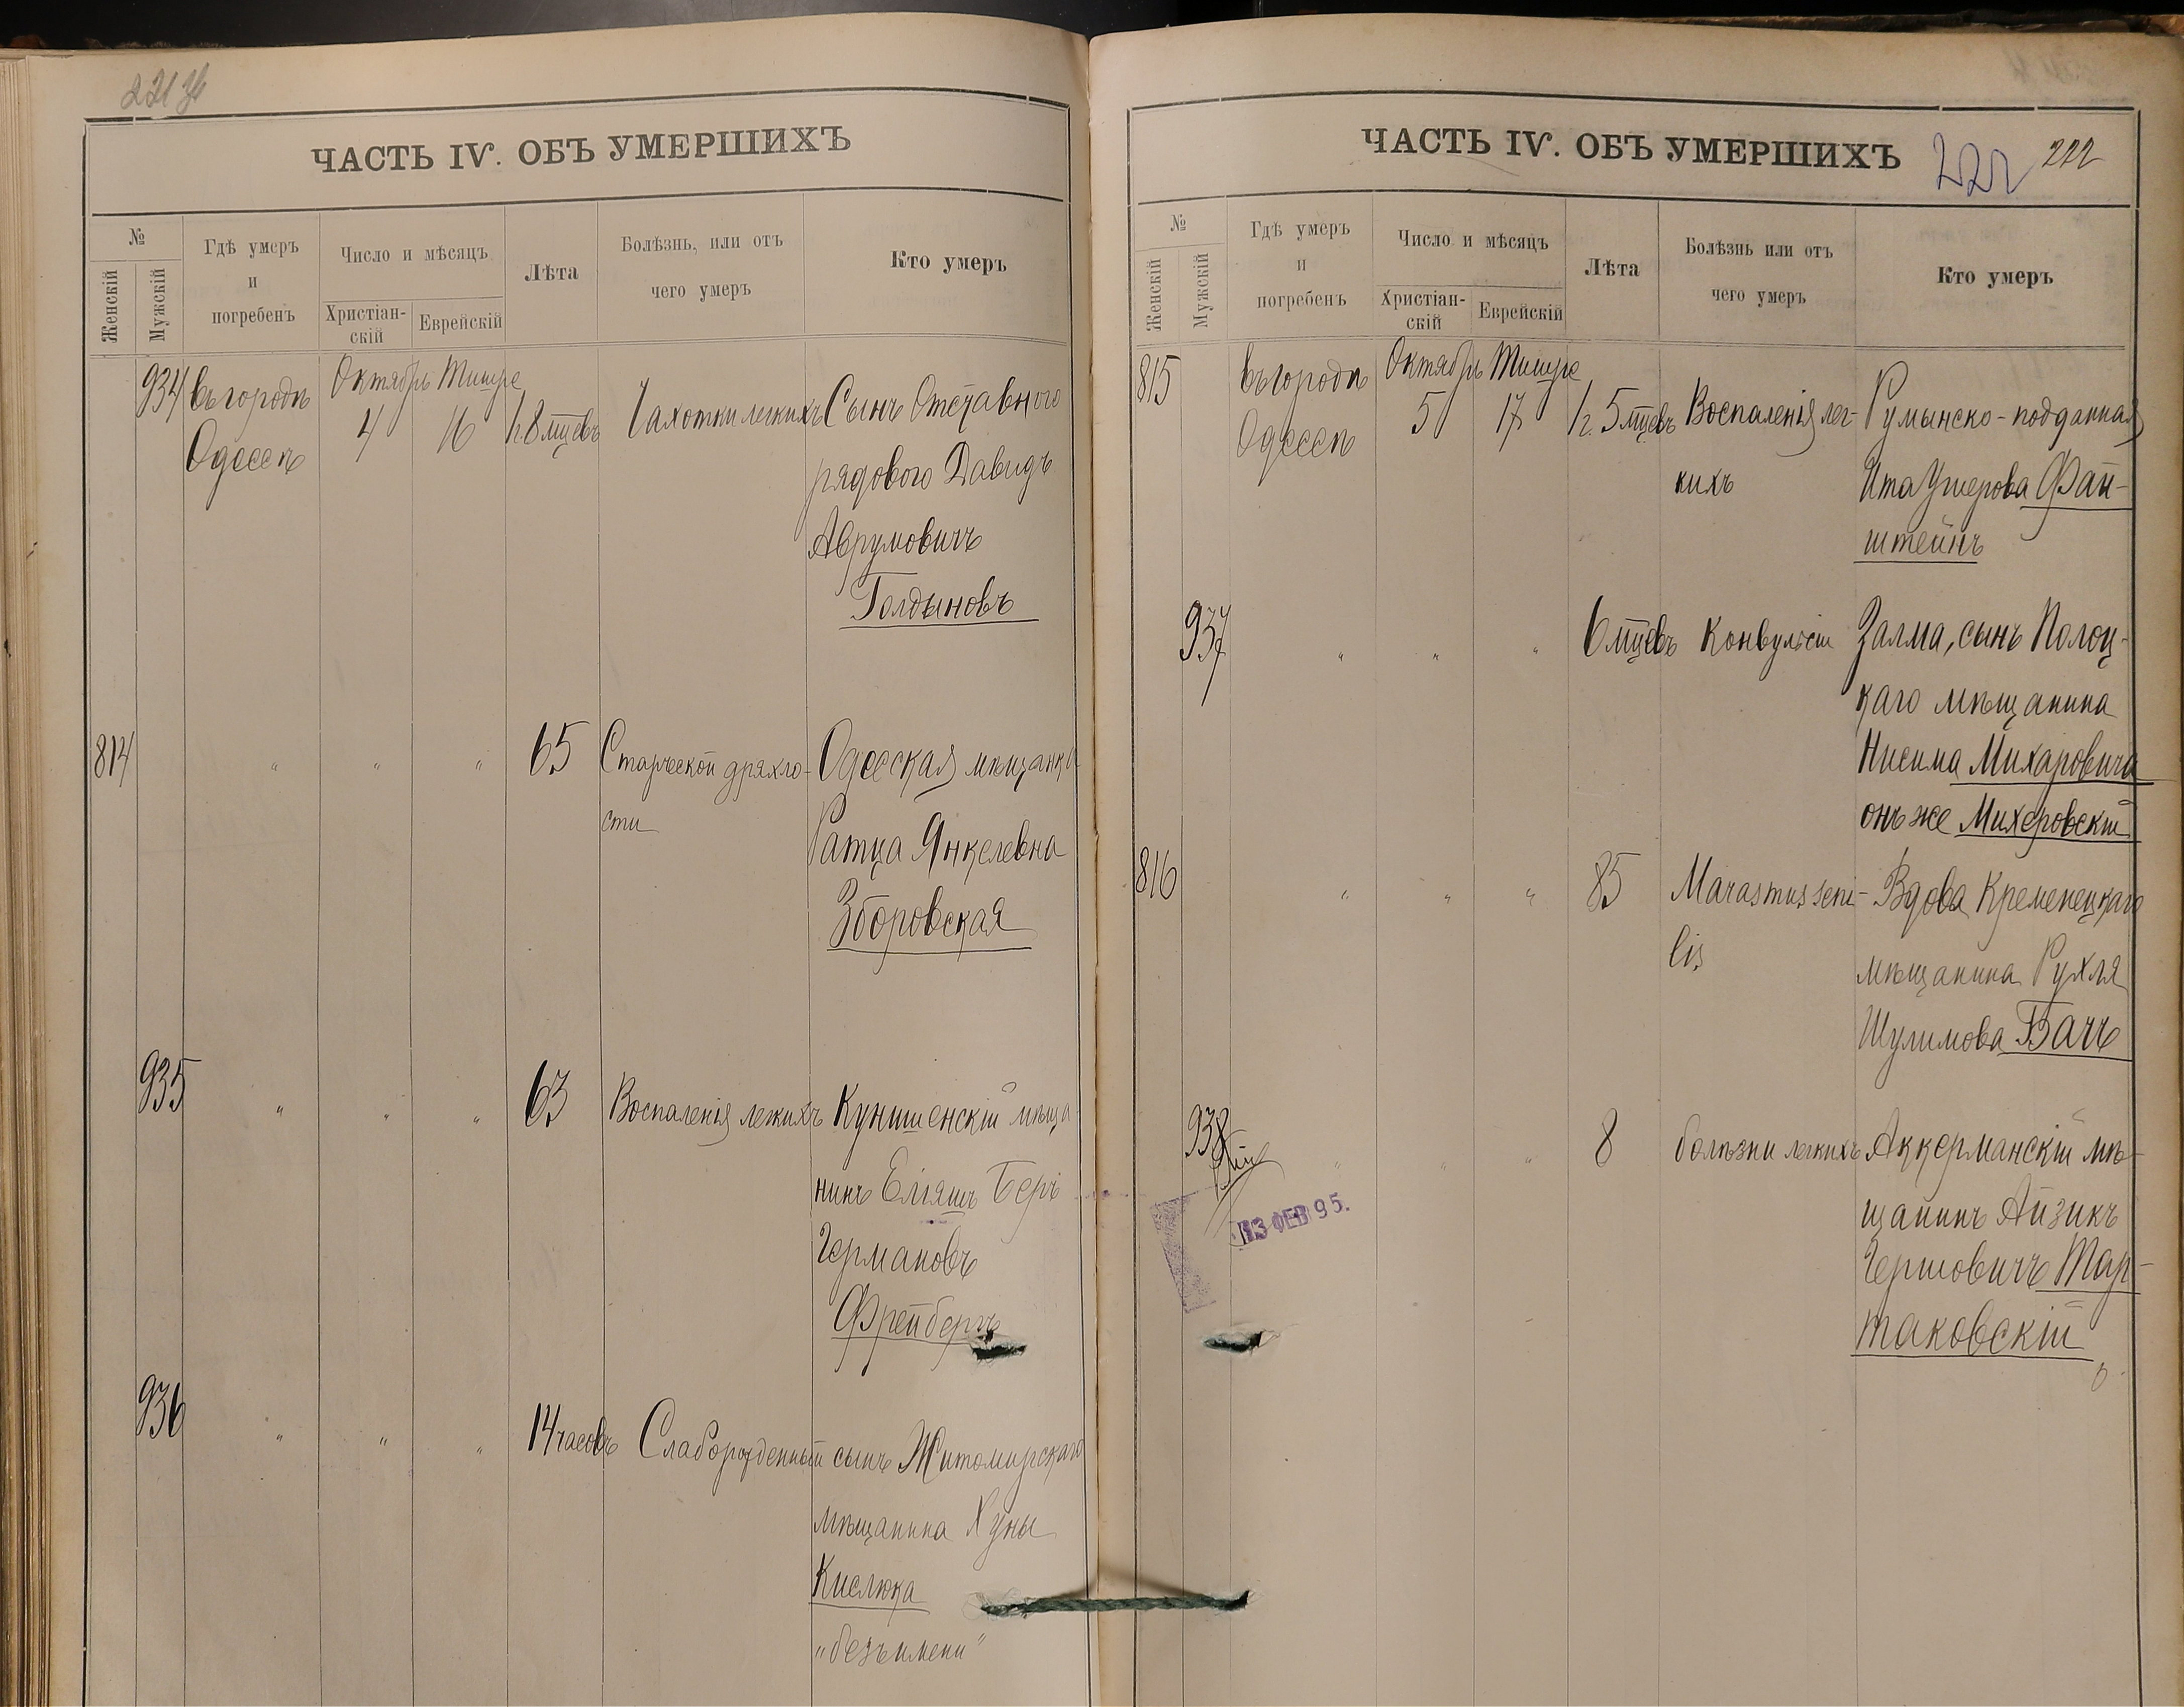 221
ЧАСТЬ IV. ОБЪ УМЕРШИХЪ
№
Женскій
Мужскій
Гдѣ умеръ
и
погребенъ
Число и мѣсяцъ
Христіан-
скій
Еврейскій
Лѣта
Болѣзнь, или отъ
чего умеръ
Кто умеръ
Октябрь Тишре
934 въ городѣ 4 16 1г. 8 мцевъ Чахотки легкихъ Сынъ Отставного
Одессѣ рядового Давидъ
Аврумовичъ
Голдыновъ
814 " " " 65 Старческой дряхло- Одесская мѣщанка
сти Ратца Янкелевна
Зборовская
935 " " " 63 Воспаленія легкихъ Кунишенскій мѣща-
нинъ Еліяшъ Беръ
Германовъ
Фрейбергъ
936 " " " 14 часовъ Слаборожденный сынъ Житомирскаго
мѣщанина Хуны
Кислюка
"безъ имени"
ЧАСТЬ IV. ОБЪ УМЕРШИХЪ
222 222
№
Женскій
Мужскій
Гдѣ умеръ
и
погребенъ
Число и мѣсяцъ
Христіан-
скій
Еврейскій
Лѣта
Болѣзнь или отъ
чего умеръ
Кто умеръ
Октябрь Тишре
815 въ городѣ 5 17 1г. 5 мцевъ Воспаленія лег- Румынско-подданная
Одессѣ кихъ Ита Ушерова Фан-
штейнъ
937 " " " 6 мцевъ Конвульсіи Залма, сынъ Полоц-
каго мѣщанина
Нисима Михаровича
онъ же Михеровскій
816 " " " 85 Marasmus seni- Вдова Кременецкаго
lis мѣщанина Рухля
Шулимова Бачъ
938 " " " 8 болѣзни легкихъ Аккерманскій мѣ-
щанинъ Айзикъ
Гершовичъ Тар-
таковскій
13 ФЕВ 95.